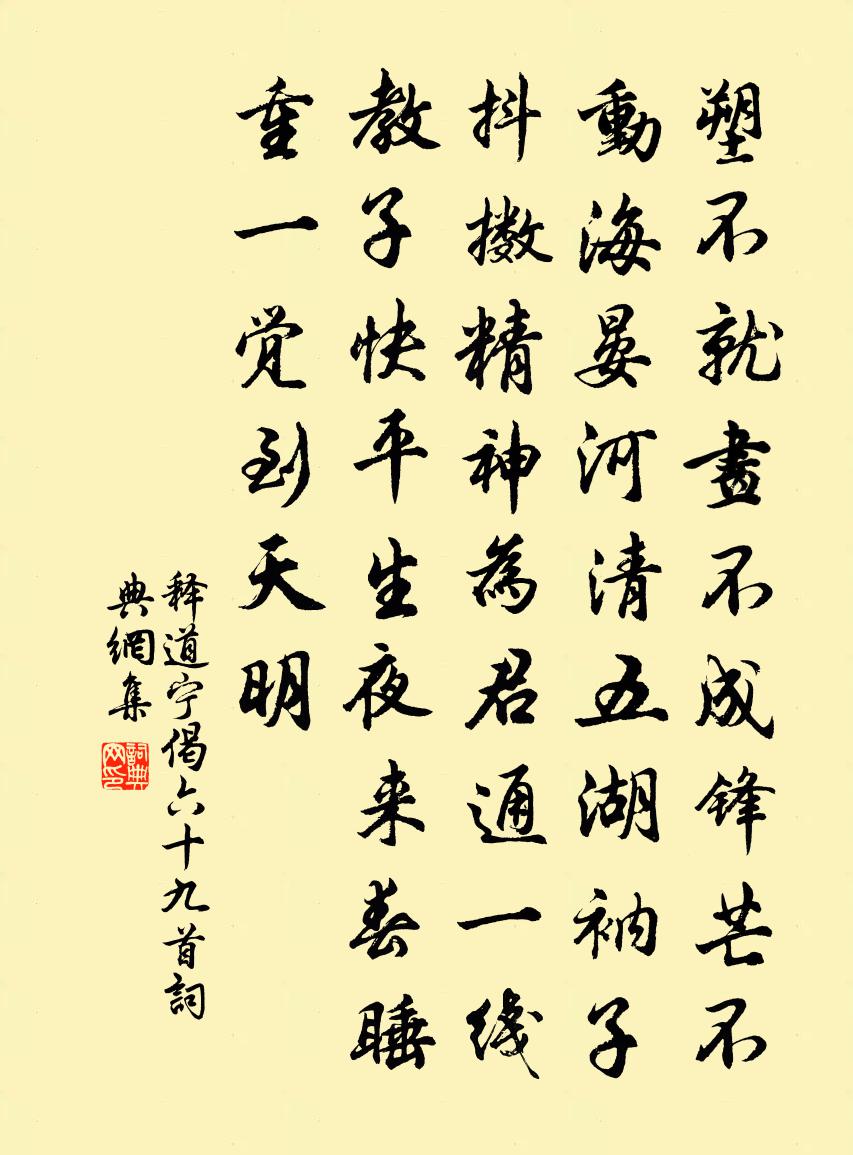 塑不就畫不成鋒芒不
動海晏河清五湖衲子
抖擞精神為君通一线
教子快平生夜来春睡
重一觉到天明
释道宁偈六十九首詞
典網集
詞典
网印